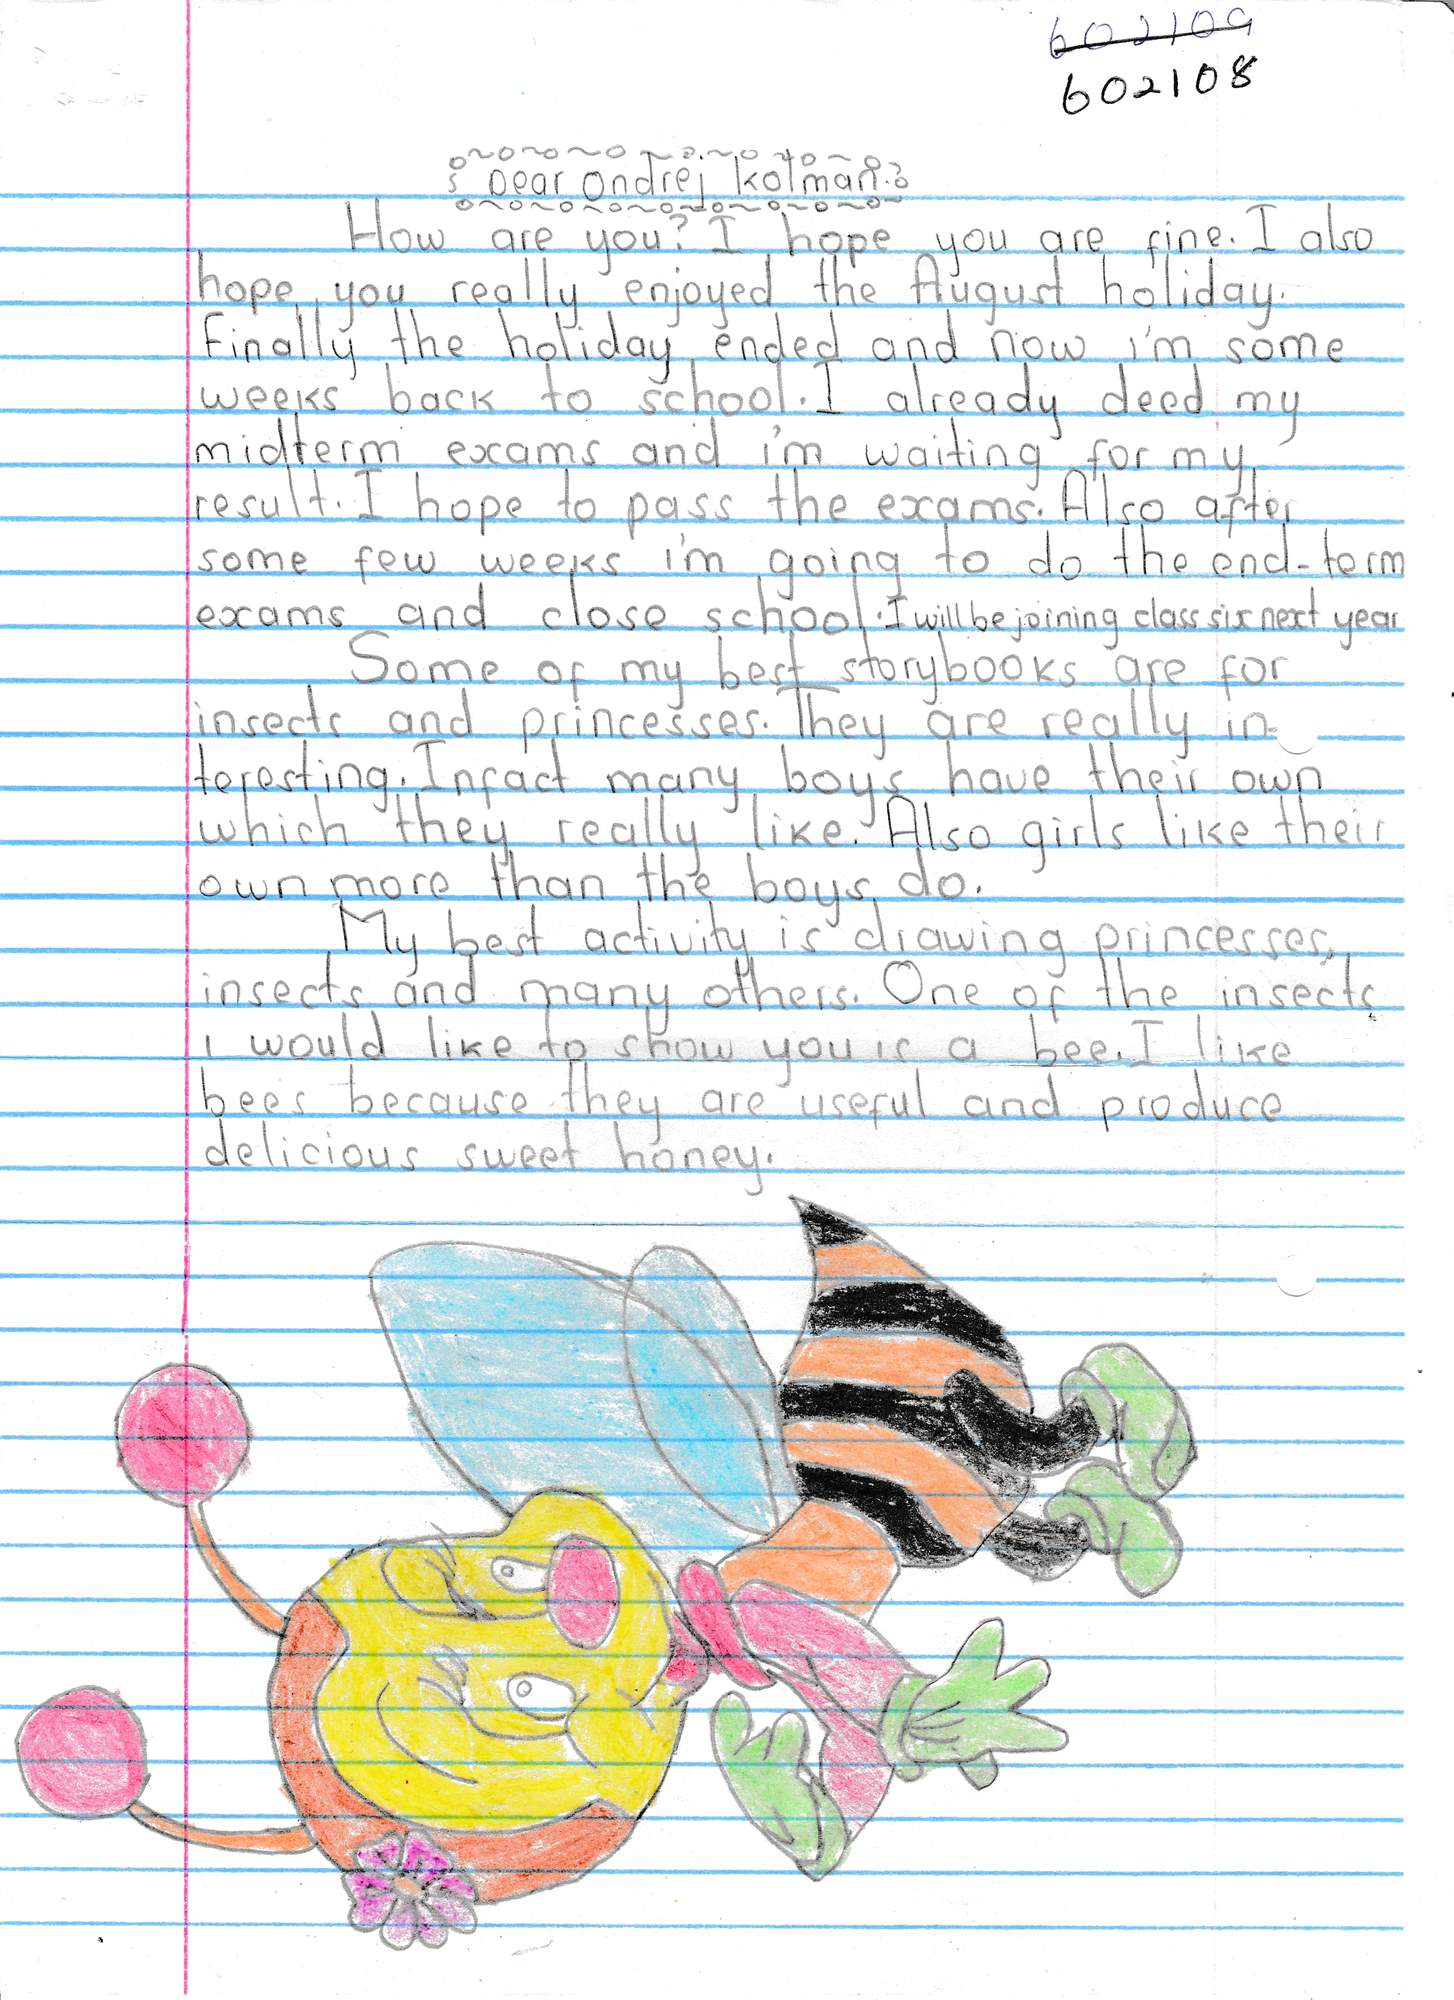 602109
602108
Dear Ondrej Kolman.
How are you? I hope you are fine. I also
hope you really enjoyed the August holiday.
Finally the holiday ended and now i'm some
weeks back to school. I already deed my
midterm exams and i'm waiting for my
result. I hope to pass the exams. Also after
some few weeks i'm going to do the end-term
exams and close school. I will be joining class six next year
Some of my best storybooks are for
insects and princesses. They are really in-
teresting. Infact many boys have their own
which they really like. Also girls like their
own more than the boys do.
My best activity is drawing princesses,
insects and many others. One of the insects
i would like to show you is a bee. I like
bees because they are useful and produce
delicious sweet honey.